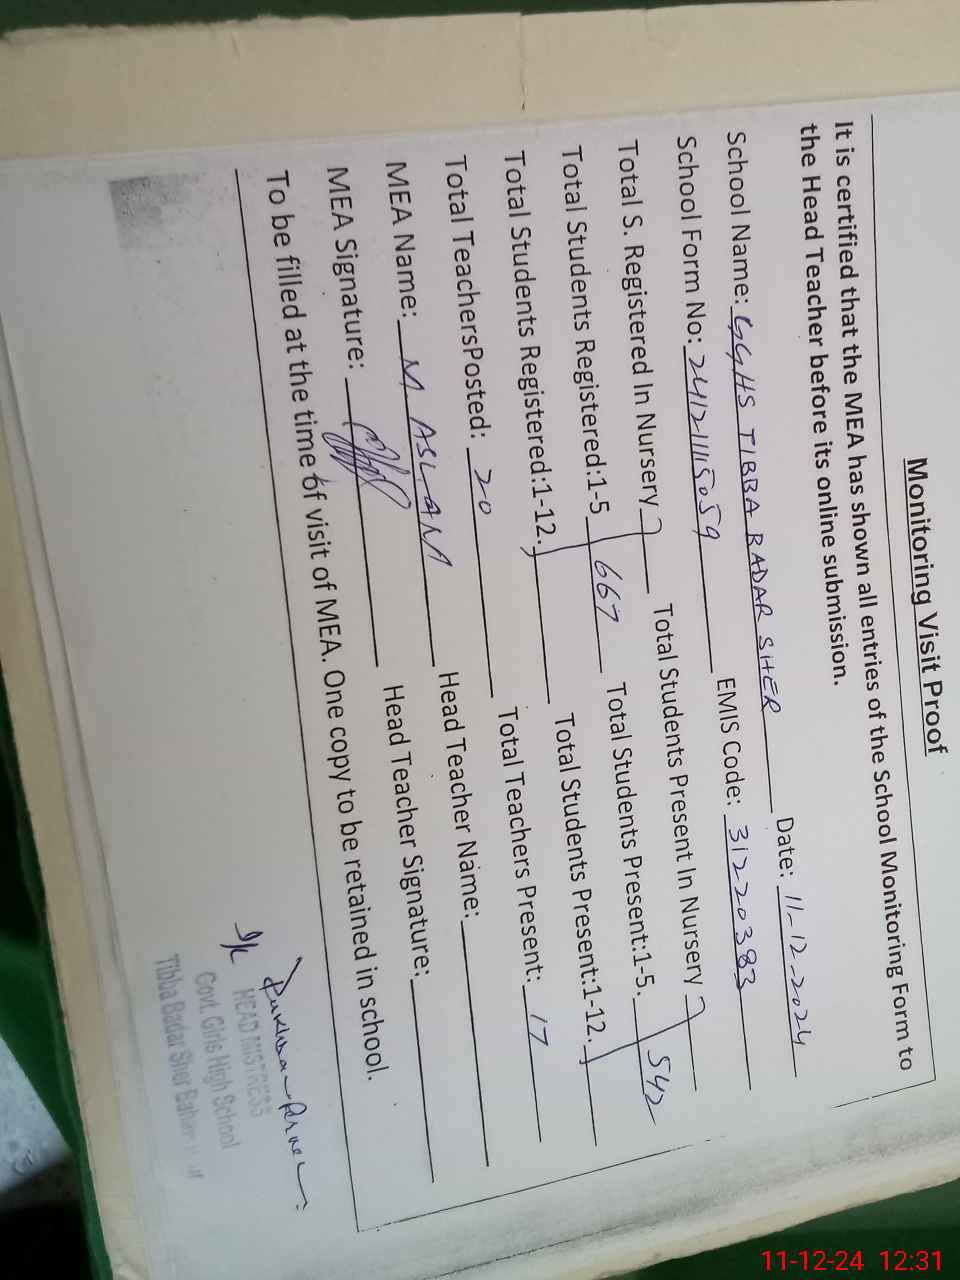 Monitoring Visit Proof
It is certified that the MEA has shown all entries of the School Monitoring Form to
the Head Teacher before its online submission.
School Name: GGHS TIBBA BADAR SHER Date: 11-12-2024
School Form No: 24121115059 EMIS Code: 31220383
Total S. Registered In Nursery Total Students Present In Nursery
Total Students Registered:1-5 667 Total Students Present:1-5. 542
Total Students Registered:1-12. Total Students Present:1-12.
Total TeachersPosted: 20 Total Teachers Present: 17
MEA Name: M ASLAM Head Teacher Name:
MEA Signature: Head Teacher Signature:
To be filled at the time of visit of MEA. One copy to be retained in school.
I/c
HEAD MISTRESS
Govt. Girls High School
Tibba Badar Sher
11-12-24 12:31